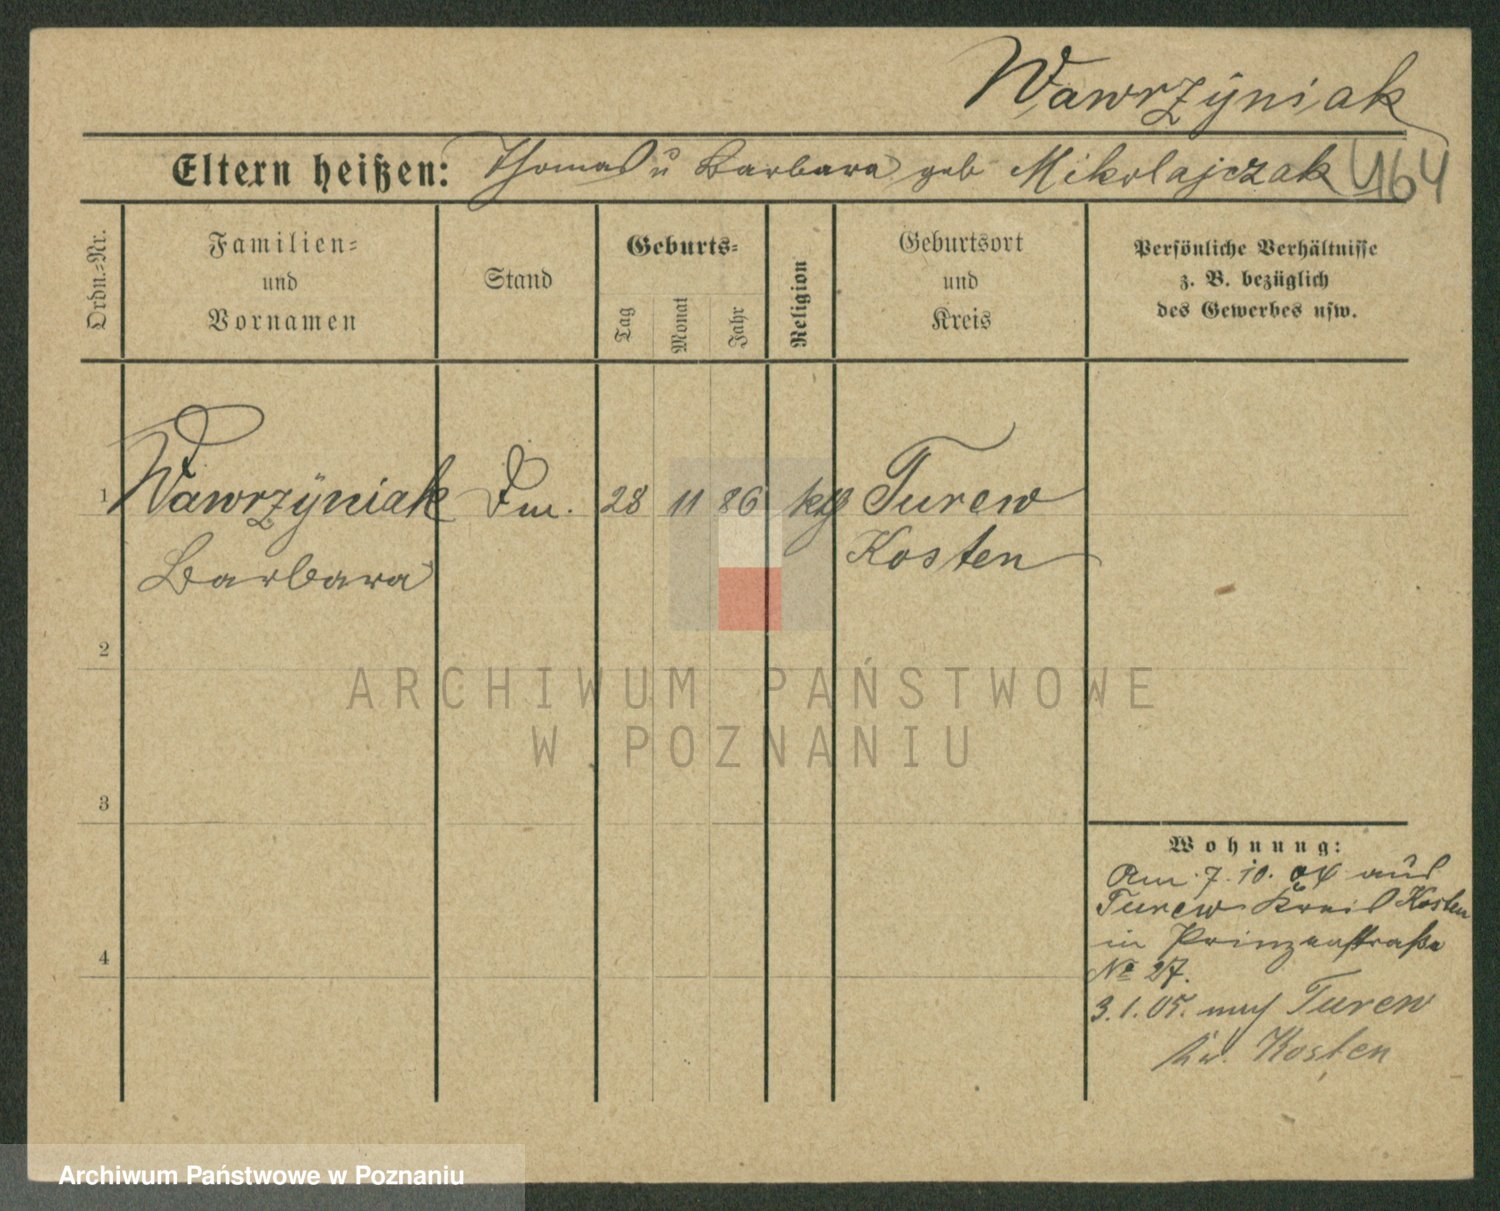 Wawrzÿniak
Eltern heißen: Thomas u Barbara geb Mikolajczak
4164
Ordn.=Nr.
Familien=
und
Vornamen
Stand
Geburts=
Tag
Monat
Jahr
Religion
Geburtsort
und
Kreis
Persönliche Verhältnisse
z. B. bezüglich
des Gewerbes usw.
1 Wawrzÿniak 28 11 86 ktℎ Turew
Barbara Kosten
2
3
4
Wohnung:
Am 7. 10. 04 aus
Turew Kreis Kosten
in Prinzenstraße
No 27.
3.1.05. nach Turew
Kr. Kosten
ARCHIWUM PAŃSTWOWE
W POZNANIU
Archiwum Państwowe w Poznaniu